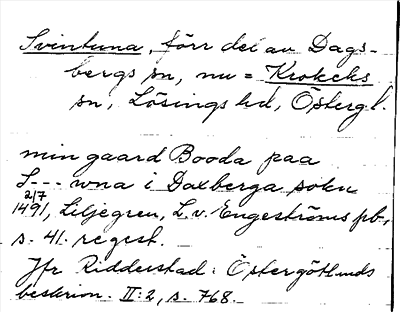 Svintuna, förr del av Dags-
bergs sn, nu = Krokeks
sn, Lösings hd, Östergl.
min gaard Booda paa
S--- wna i Daxberga sokn
2/7
1491, Liljegren, L. v. Engeströms pb.,
s. 41. regest.
Jfr Ridderstad: Östergötlands
beskrivn. II: 2, s. 768.